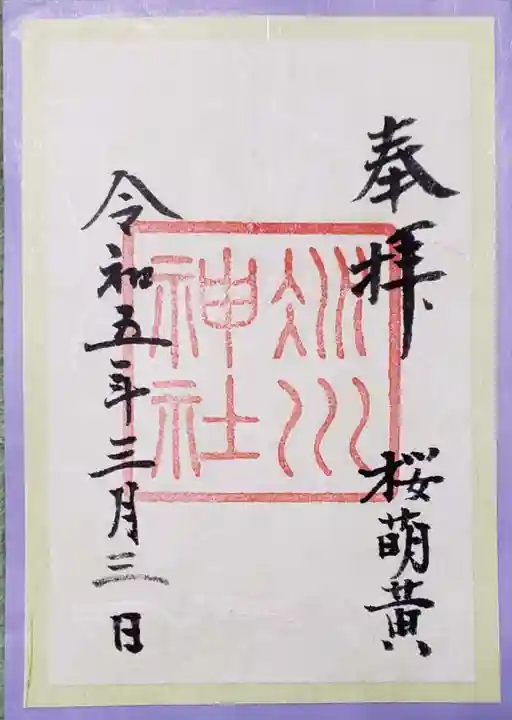 奉拝
桜萌黄
冰川
神社
令和五年三月三日